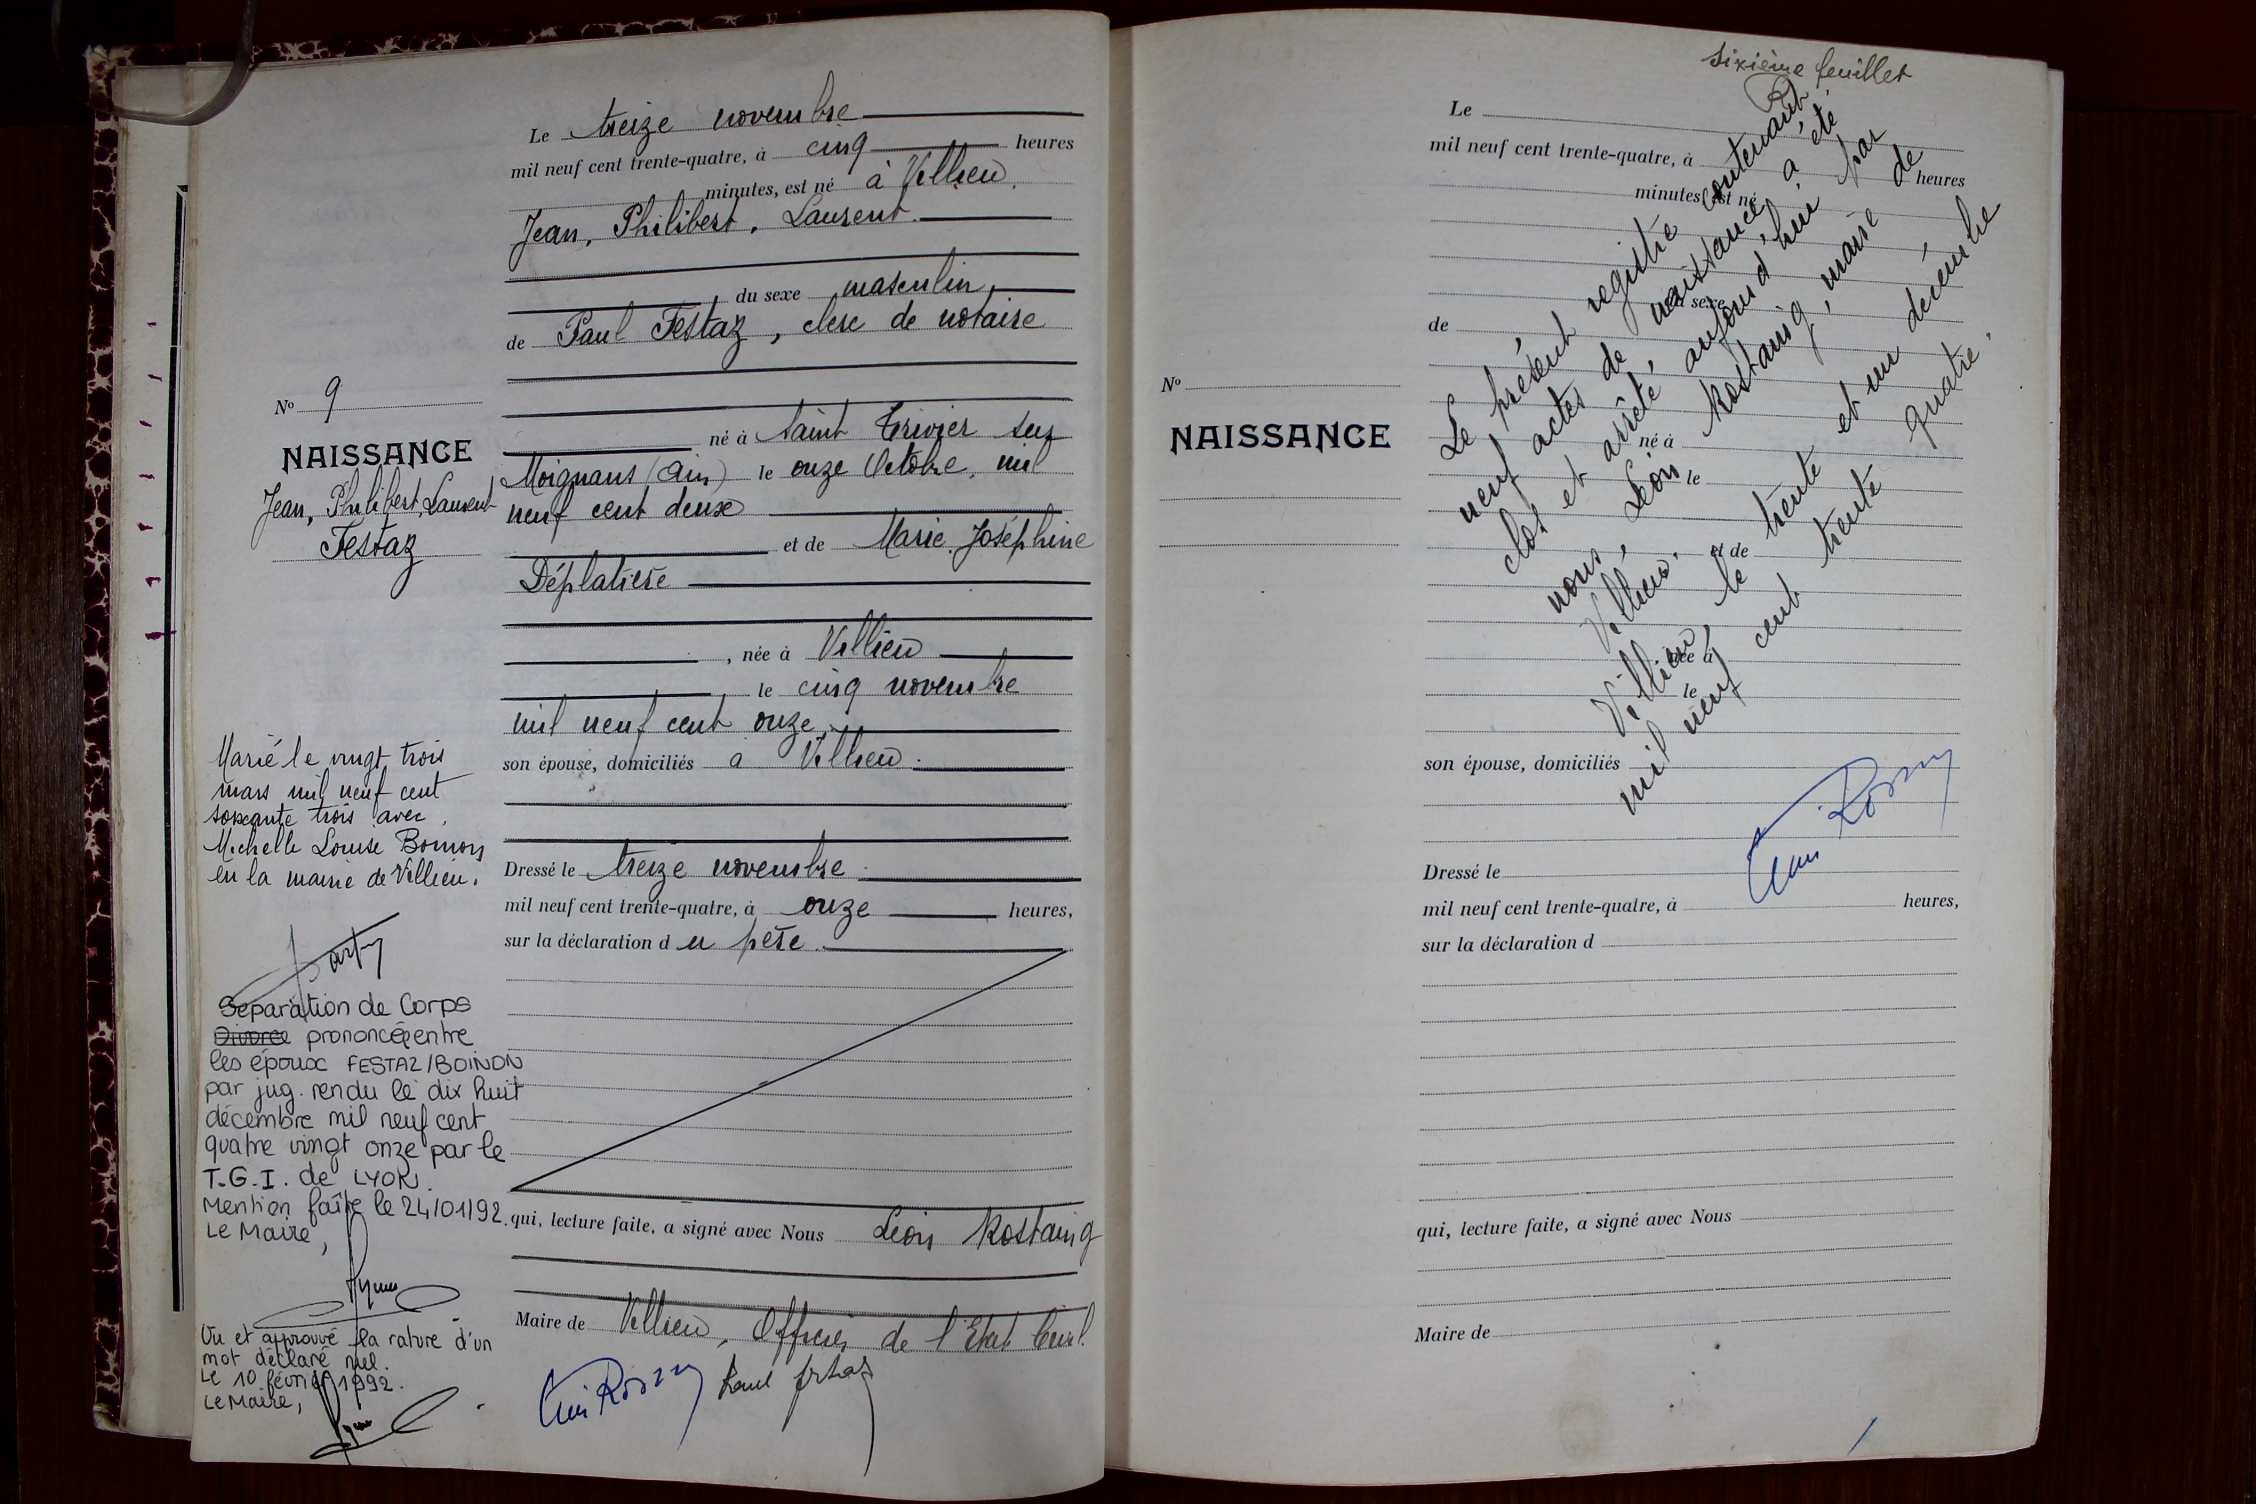 Le treize novembre
mil neuf cent trente-quatre, à cinq heures
minutes, est né à Villieu.
Jean, Philibert, Laurent.
du sexe masculin
de Paul Festaz, clerc de notaire
né à Saint Trivier sur
Moignans (Ain) le onze Octobre, mil
neuf cent deux
et de Marie Joséphine
Déplatière
, née à Villieu
le cinq novembre
mil neuf cent onze
son épouse, domiciliés à Villieu.
Dressé le treize novembre
mil neuf cent trente-quatre, à onze heures,
sur la déclaration du père.
qui, lecture faite, a signé avec Nous Léon Rostaing
Maire de Villieu, Officier de l'Etat Civil.
No 9
NAISSANCE
Jean, Philibert, Laurent
Festaz
Marié le vingt trois
mars mil neuf cent
soixante trois avec
Michelle Louise Boinon
en la mairie de Villieu.
Séparation de Corps
Divorce prononcée entre
les époux FESTAZ/BOINON
par jug. rendu le dix huit
décembre mil neuf cent
quatre vingt onze par le
T.G.I. de LYON.
Mention faîte le 24/01/92.
Le Maire,
Vu et approuvé la rature d'un
mot déclaré nul.
Le 10 février 1992.
Le Maire,
sixième feuillet
Le
mil neuf cent trente-quatre, à heures
minutes, est né
du sexe
de
No
NAISSANCE
né à
le
et de
née à
le
son épouse, domiciliés
Dressé le
mil neuf cent trente-quatre, à heures,
sur la déclaration d
qui, lecture faite, a signé avec Nous
Maire de
Le présent registre contenant
neuf actes de naissance, a été
clos et arrêté, aujourd'hui par
nous, Léon Rostaing, maire de
Villieu.
Villieu, le trente et un décembre
mil neuf cent trente quatre.